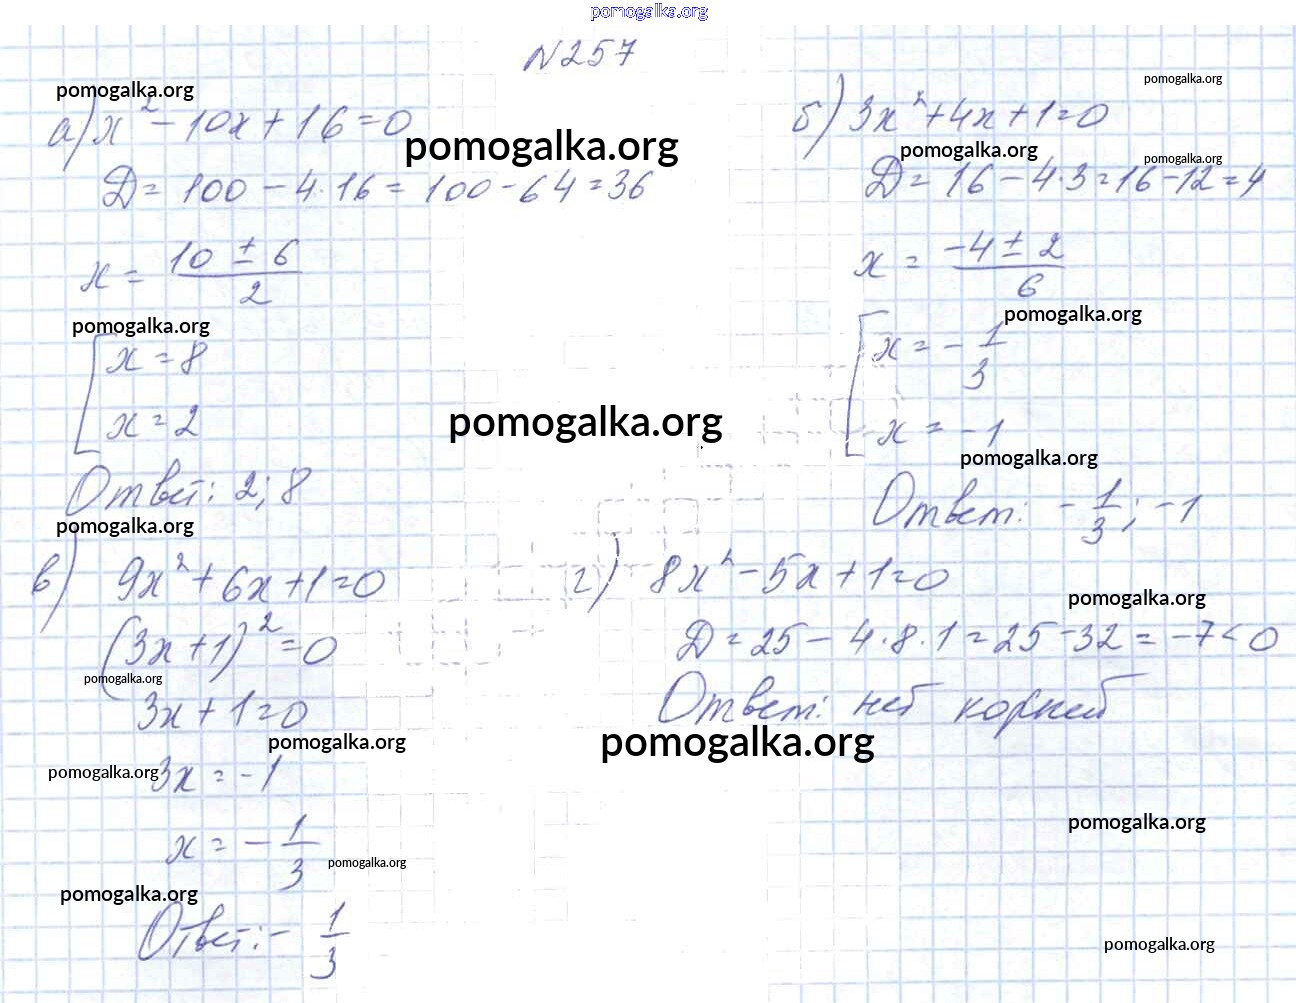 pomogalka.org
N257
pomogalka.org
а) x² - 10x + 16 = 0
pomogalka.org
Д = 100 - 4·16 = 100 - 64 = 36
x = (10 ± 6)/2
pomogalka.org
x = 8
x = 2
pomogalka.org
Ответ: 2; 8
pomogalka.org
pomogalka.org
б) 3x² + 4x + 1 = 0
pomogalka.org
pomogalka.org
Д = 16 - 4·3 = 16 - 12 = 4
x = (-4 ± 2)/6
pomogalka.org
x = -1/3
x = -1
pomogalka.org
Ответ: -1/3; -1
в) 9x² + 6x + 1 = 0
(3x + 1)² = 0
pomogalka.org
3x + 1 = 0
pomogalka.org
pomogalka.org
3x = -1
x = -1/3
pomogalka.org
pomogalka.org
Ответ: -1/3
г) 8x² - 5x + 1 = 0
pomogalka.org
Д = 25 - 4·8·1 = 25 - 32 = -7 < 0
Ответ: нет корней
pomogalka.org
pomogalka.org
pomogalka.org